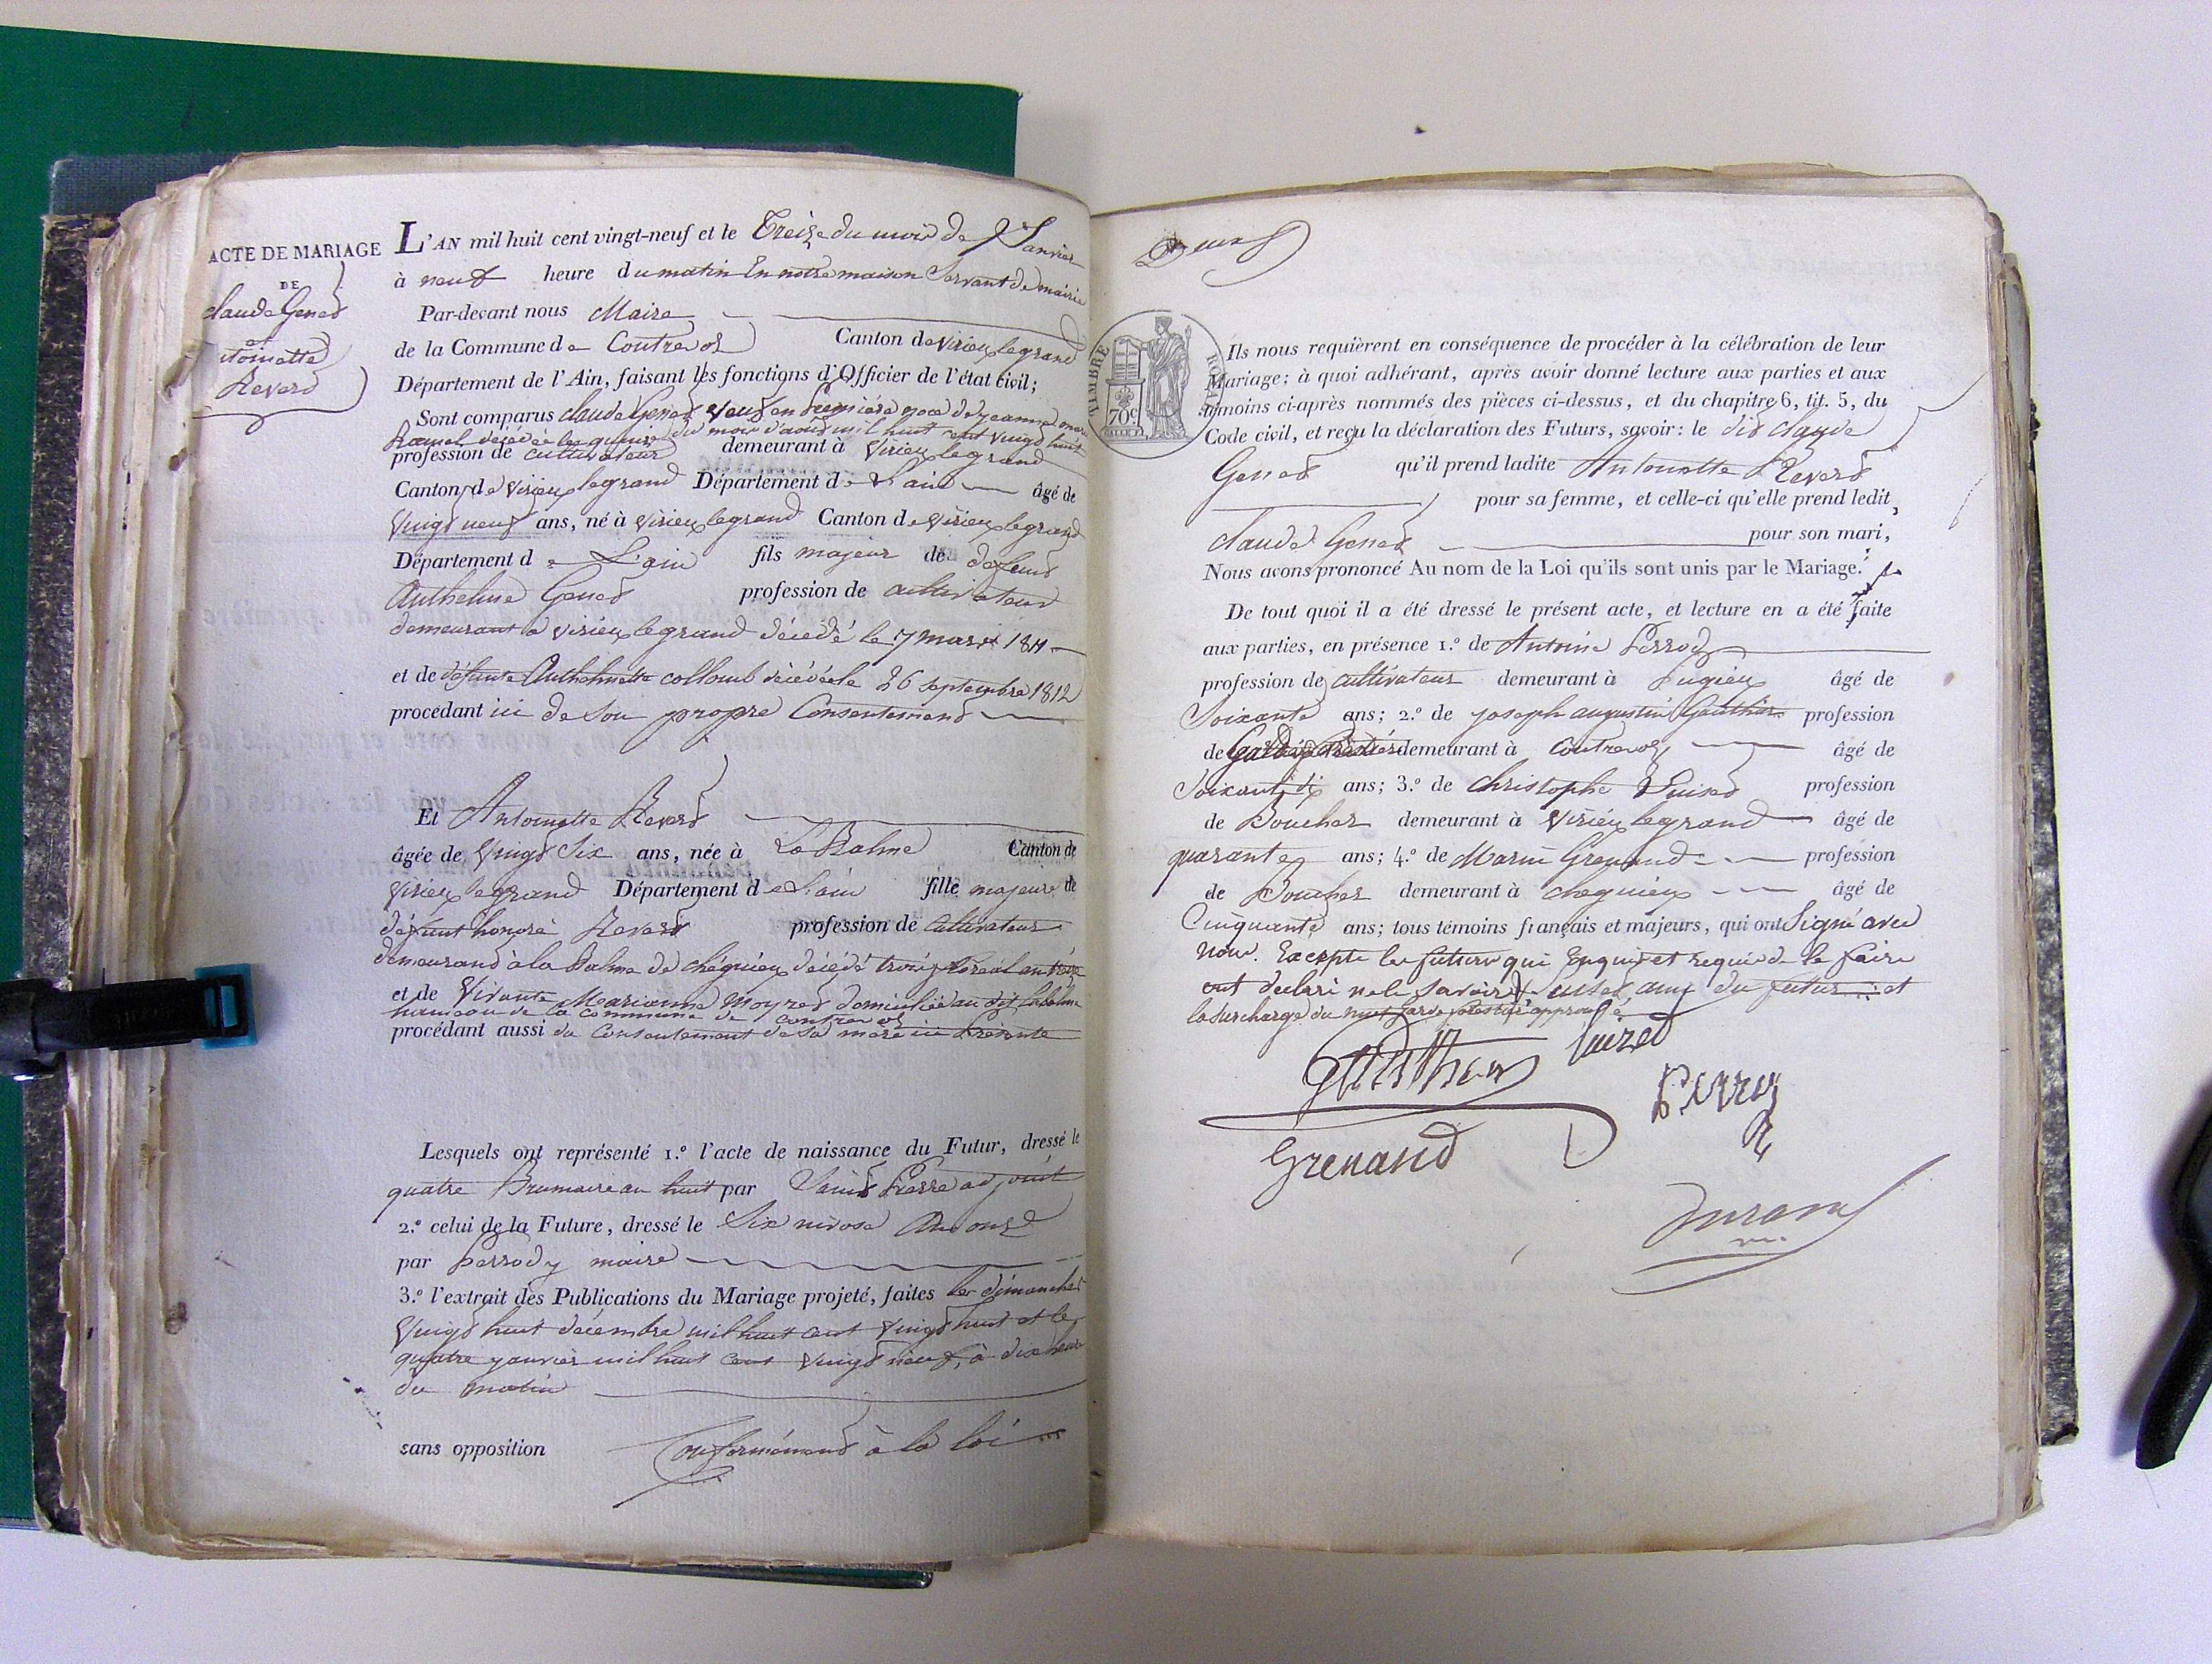 ACTE DE MARIAGE
DE
claude Genet
et
Revert
L'AN mil huit cent vingt-neuf et le Treize du mois de Janvier
à neuf heure du matin En notre maison Servant de mairie
Par-devant nous Maire
de la Commune de Contrevoz Canton de virieu legrand
Département de l'Ain, faisant les fonctions d'Officier de l'état civil;
Sont comparus claude Genet veuf en premiere noce de jeanne
décédée le quinze du mois d'aout mil huit cent vingt huit
profession de cultivateur demeurant à virieu legrand
Canton de virieu legrand Département de L'ain âgé de
vingt neuf ans, né à virieu legrand Canton de virieu legrand
Département de L'ain fils majeur de defunt
Anthelme Genet profession de cultivateur
demeurant a virieu legrand décédé le 7 mars 1811
et de défunte collomb décédée le 26 septembre 1812
procédant ici de son propre Consentement
Et Antoinette Revert
âgée de vingt Six ans, née à La Balme Canton de
virieu legrand Département de L'ain fille majeure de
défunt honoré Revert profession de cultivateur
demeurant à la Balme de chégnieu décédé trois floréal an
et de vivante Marianne domiciliée au dit labalme
hameau de la commune de contrevoz
procédant aussi du consentement de sa mere ici Présente
Lesquels ont représenté 1.º l'acte de naissance du Futur, dressé le
quatre Brumaire an huit par adjoint
2.º celui de la Future, dressé le Six nivose An onze
par perrody maire
3.º l'extrait des Publications du Mariage projeté, faites les dimanches
vingt huit décembre mil huit cent vingt huit et le
quatre janvier mil huit cent vingt neuf, à dix heure
du matin
sans opposition Conformément à la loi
Deux
TIMBRE ROYAL
70c
Ils nous requièrent en conséquence de procéder à la célébration de leur
Mariage; à quoi adhérant, après avoir donné lecture aux parties et aux
témoins ci-après nommés des pièces ci-dessus, et du chapitre 6, tit. 5, du
Code civil, et reçu la déclaration des Futurs, savoir: le dit claude
Genet qu'il prend ladite Antoinette Revert
pour sa femme, et celle-ci qu'elle prend ledit
claude Genet pour son mari,
Nous avons prononcé Au nom de la Loi qu'ils sont unis par le Mariage.
De tout quoi il a été dressé le présent acte, et lecture en a été faite
aux parties, en présence 1.º de Antoine Perrody
profession de cultivateur demeurant à Pugieu âgé de
Soixante ans; 2.º de joseph augustin Gauthier profession
de Garde forestier demeurant à contrevoz âgé de
Soixante dix ans; 3.º de christophe profession
de Boucher demeurant à virieu legrand âgé de
quarante ans; 4.º de Marin Grenand profession
de Boucher demeurant à chegnieu âgé de
Cinquante ans; tous témoins français et majeurs, qui ont Signé avec
nous. Excepté les futurs qui Enquis et requis de le faire
ont declaré ne le savoir du futur et
la surcharge du mot garde forestier approuvé
Gauthier
Perrody
Grenand